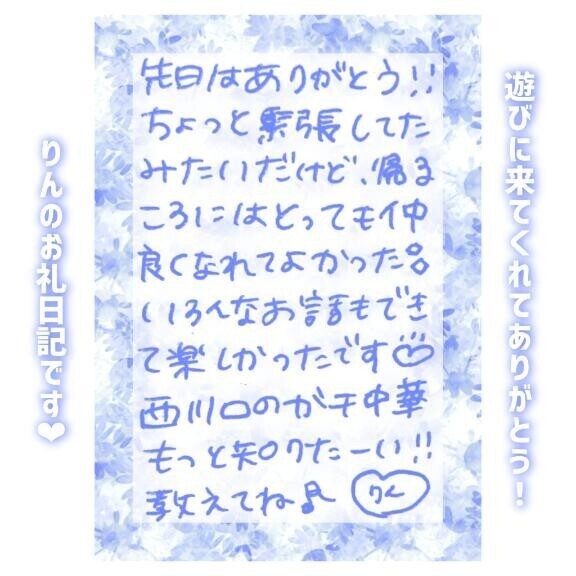 遊びに来てくれてありがとう！
先日はありがとう!!
ちょっと緊張してた
みたいだけど、帰る
ころにはとっても仲
良くなれてよかった。
いろんなお話もでき
て楽しかったです♡
西川口のガチ中華
もっと知りたーい!!
教えてね♪ りん
りんのお礼日記です❤